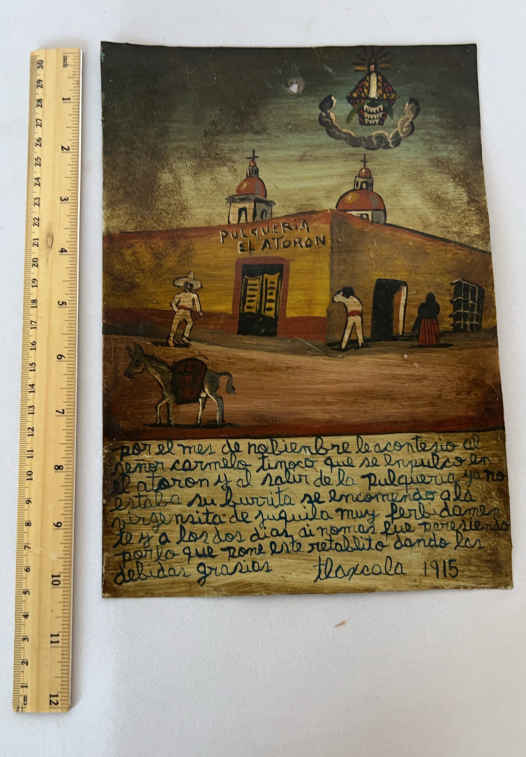 PULQUERIA
EL ATORON
por el mes de nobienbre le acontesio al
señor carmelo tinoco que se enpulco en
el atoron y al salir de la pulqueria ya no
estaba su burrita se encomendo a la
virgensita de juquila muy ferbidamen
te y a los dos dias ai nomas fue paresiendo
por lo que pone este retablito dando las
debidas grasias tlaxcala 1915
inch
1
2
3
4
5
6
7
8
9
10
11
12
30
29
28
27
26
25
24
23
22
21
20
19
18
17
16
15
14
13
12
11
10
9
8
7
6
5
4
3
2
1
cm